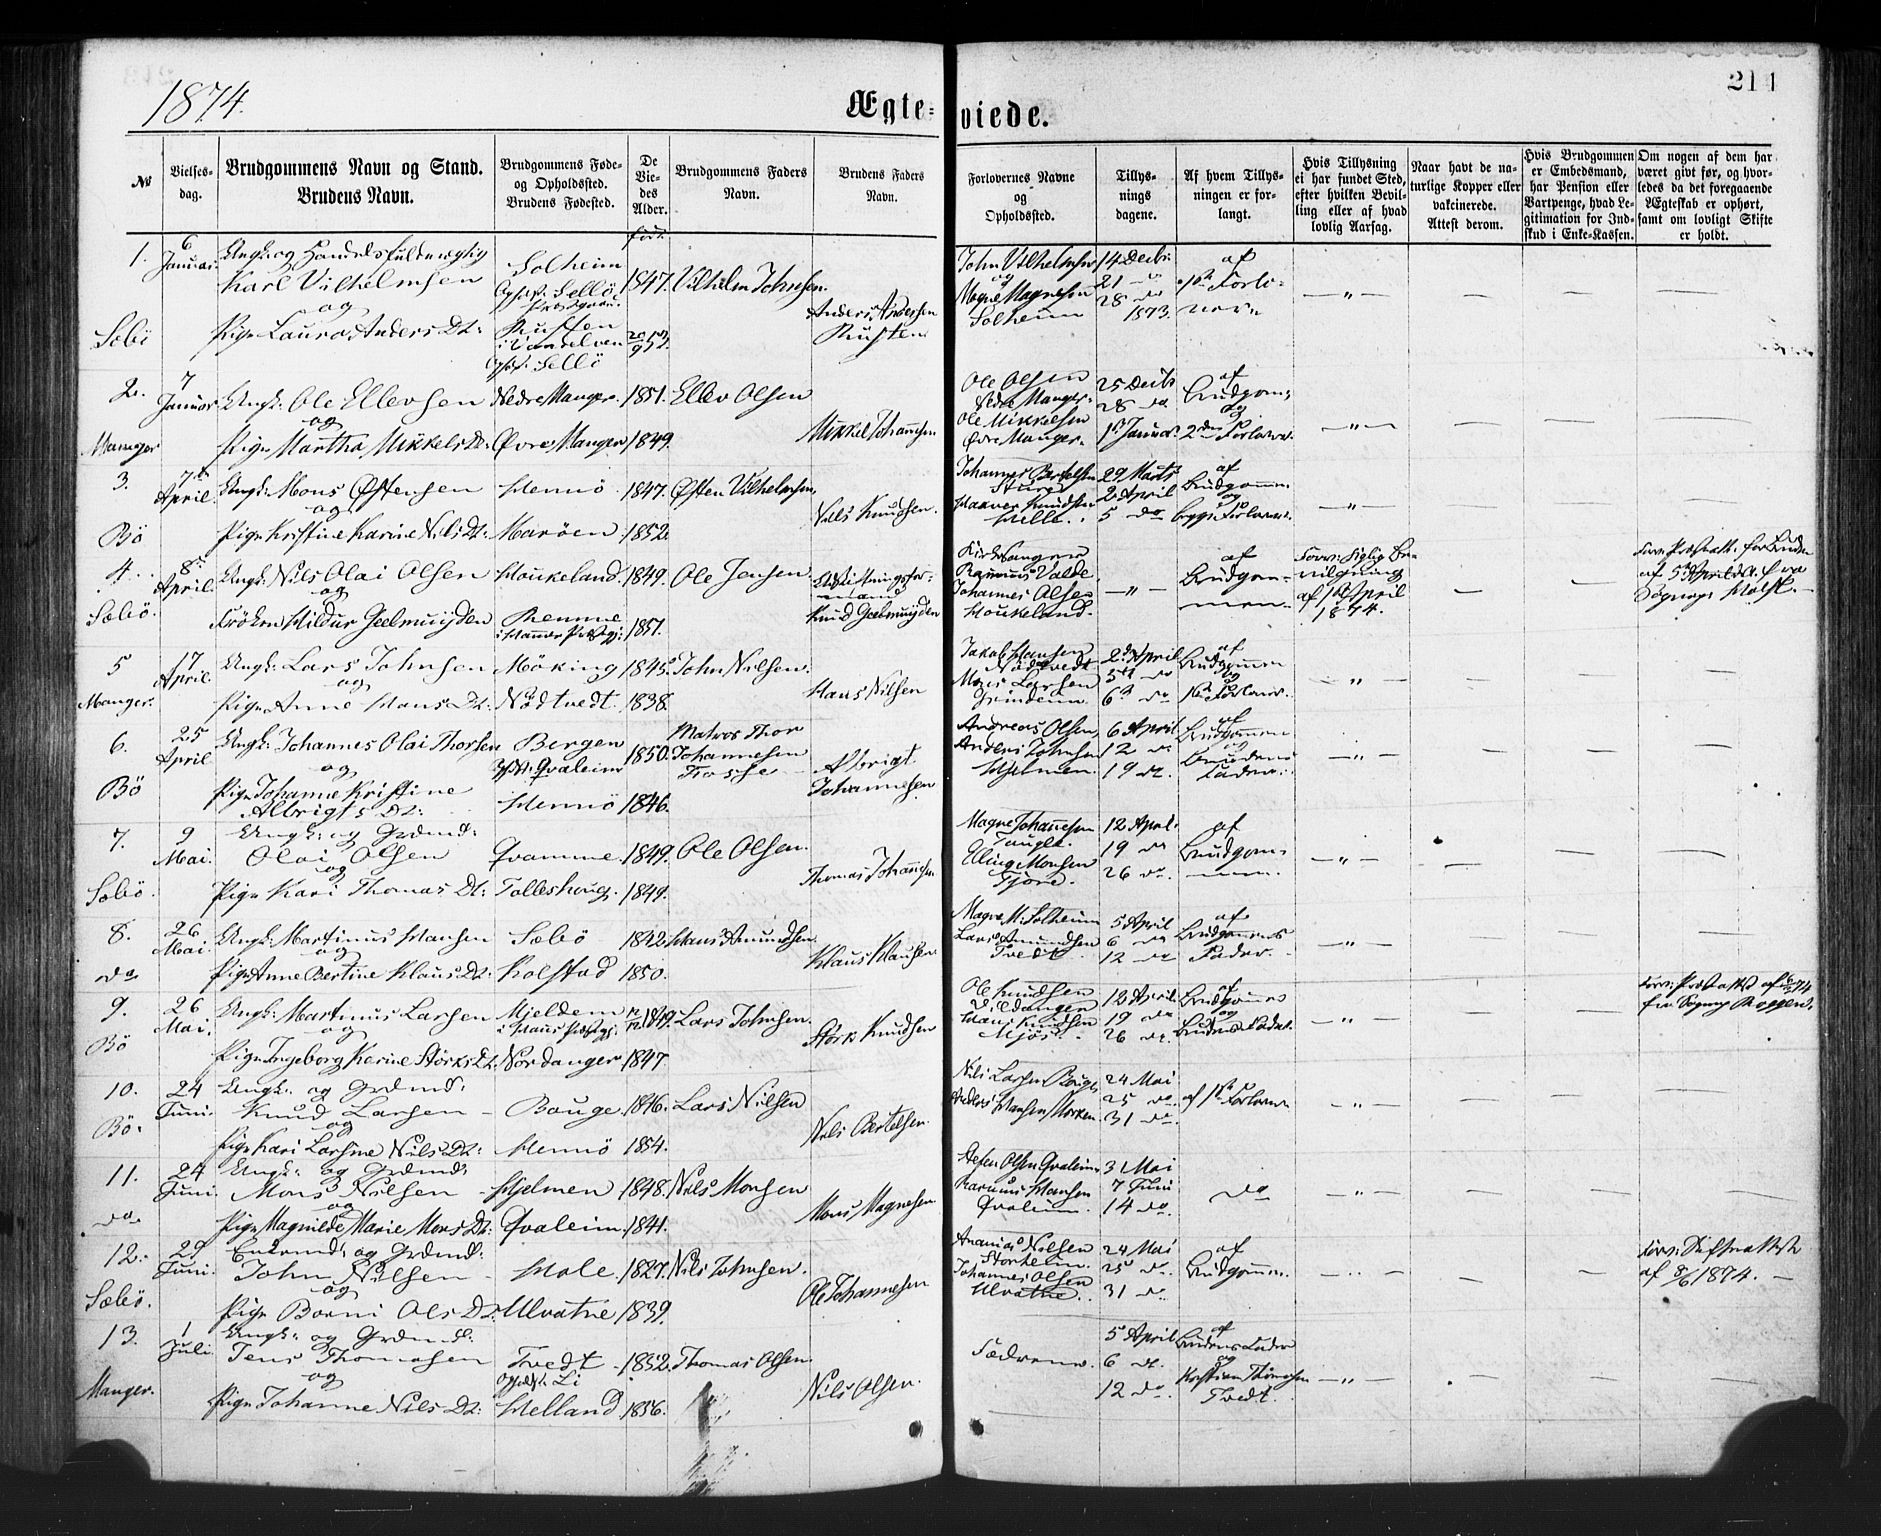 1874.
Ægte-viede.
211
No
Vielses-dag.
Brudgommens Navn og Stand.
Brudens Navn.
Brudgommens Føde-
og Opholdssted.
Brudens Fødested.
De
Vie-
des
Alder.
Brudgommens Faders
Navn.
Brudens Faders
Navn.
Forlovernes Navne
og
Opholdssted.
Tillys-
nings
dagene.
Af hvem Tillys-
ningen er for-
langt.
Hvis Tillysning
ei har fundet Sted,
efter hvilken Bevil-
ling eller af hvad
lovlig Aarsag.
Naar havt de na-
turlige Kopper eller
vakcinerede.
Attest derom.
Hvis Brudgommen
er Embedsmand,
har Pension eller
Vartpenge, hvad Le-
gitimation for Ind-
skud i Enke-Kassen.
Om nogen af dem har
været givt før, og hvor-
ledes da det foregaaende
Ægteskab er ophørt,
samt om lovligt Skifte
er holdt.
født.
1. 6 Januar. Ungk: og Handelsfuldmægtig
Karl Vilhelmsen Solheim 1847. Vilhelm Johnsen.
og
Sæbö Pige Laura Anders Dt: Rusten 20/9 52. Anders Andersen Rusten
Opst: Sellö
John Vilhelmsen 14 Decbr: af
og 21 do 1ste Forlo-
Mogne Magnesen 28 do ver
Solheim 1873.
2. 7 Januar Ungk: Ole Ellevsen Nedre Manger. 1851. Ellev Olsen
og
Manger Pige Martha Mikkels Dt: Øvre Manger 1849. Mikkel Johannsen
Ole Olsen 25 Decbr af
Nedre Manger. 28 do Brudgom:
Ole Mikkelsen og
Øvre Manger. 1st Januar. 2den Forlover.
3. 7de April Ungk: Mons Østensen Hennö 1847. Østen Vilhelmsen,
og
Bö Pige Kristine Karine Nils Dt: Maröen 1852. Nils Knudsen.
Johannes Bertelsen 29 Marts af
2 April Brudgomm
Haaver Knudsen og
Helle. 5 do begge Forlovere.
4. 8de April. Ungk: Nils Olai Olsen Houkeland. 1849. Ole Jensen.
og
Sæbö. Fröken Hildur Geelmuijden Remme 1851. Knud Geelmuijden
i Hammer Præstgj:
Kirkesanger af
Rasmus Valde, Brudgom-
Johannes Olsen men.
Houkeland.
Forev: Kgliy Be-
vilgning
af 1ste April
1874.
5 17 April. Ungk: Lars Johnsen Möking 1845. John Nilsen.
og
Manger. Pige Anne Hans Dt: Nödtvedt. 1838. Hans Nilsen
Jakob Hansen 2den April af
Nödtvedt 5te do Brudgommen
Mons Larsen og
Grindeim 6te do 1ste Forlover.
6. 25 April Ungk: Johannes Olai Thorsen Bergen 1850. Matros Thor
og Opst: Qvaleim Johannesen
Fosse
Bö Pige Johanne Kristine
Albrigts Dt: Hennö 1846. Albrigt
Johannesen
Andreas Olsen, 6 April af
Anders Johnsen 12 do Brudgommen
Hjelmen. 19 do. og
Brudens
Fader.
7. 9 Mai. Ungk: og Grdmd:
Olai Olsen Qvamme. 1849. Ole Olsen.
og
Sæbö. Pige Kari Thomas Dt: Tolleshoug. 1849. Thomas Johannsen
Magne Johannesen 12 April. af
Taugle. 19 do Brudgom-
Elling Monsen 26 do. men.
Fjöre.
8. 26 Mai. Ungk: Martinus Hansen Sæbö 1842. Hans Amundsen.
og
do Pige Anne Bertine Klaus Dt: Kolstad 1850. Klaus Klausen
Magne M: Solheim 5 April af
Lars Amundsen 6 do Brudgommens
Tvedt. 12 do Fader.
9. 26 Mai. Ungk: Martinus Larsen Mjeldem 1849. Lars Johnsen.
og i Haus Præstgj:
Bö Pige Ingeborg Karine Störks Dt: Nordanger 1847. Störk Knudsen
Ole Knudsen 12 April. af
Vildanger 19 do Brudgommen
Hans Knudsen og
Mjös. 26 do. Brudens Fader.
10. 24 Juni. Ungk: og Grdmd:
Knud Larsen Bauge 1846. Lars Nilsen
og
Bö. Pige Kari Larsine Nils Dt: Hennö 1854. Nils Bertelsen.
Nils Larsen Bauge, 24 Mai
25 do af 1ste Forlover
Anders Hansen Morken. 31 do.
11. 24 Juni. Ungk: og Grdmd:
Mons Nilsen Hjelmen 1848. Nils Monsen
og
do. Pige Magnilde Marie Mons Dt: Qvaleim. 1841. Mons Magnesen
Steffen Olsen Qvaleim 31 Mai
Rasmus Hansen 7 Juni do
Qvaleim. 14 do.
12. 29 Juni. Enkemd: og Grdmd:
John Nilsen Hole 1827. Nils Johnsen.
og
Sæbö. Pige Borni Ols Dt: Ulvatne 1839. Ole Johannesen
Ananias Nilsen 24 Mai af
Storheim. 25 do. Brudgommen.
Johannes Olsen
Ulvatne. 31 do.
Forev: Skifteattest
af 8/6 1874.
13. 1 Juli Ungk: og Grdmd:
Jens Thomasen Tvedt 1852. Thomas Olsen
og Opst: Li
Manger. Pige Johanne Nils Dt: Helland 1856. Nils Olsen.
Fædrene. 5 April af
Brudens Fader
6 do. og
12 do Kristian Thomasen
Tvedt.